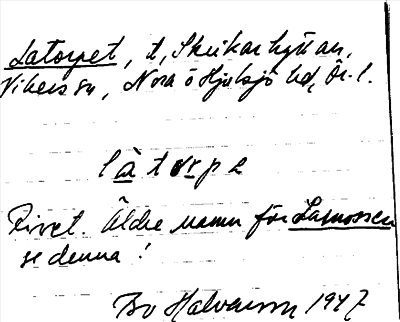 Latorpet, t, Skrikarhyttan,
Vikers sn, Nora o Hjulsjö hd, Ör. l.
làtorpe
Rivet. Äldre namn för Lamossen
se denna!
Bo Halvarson 1947